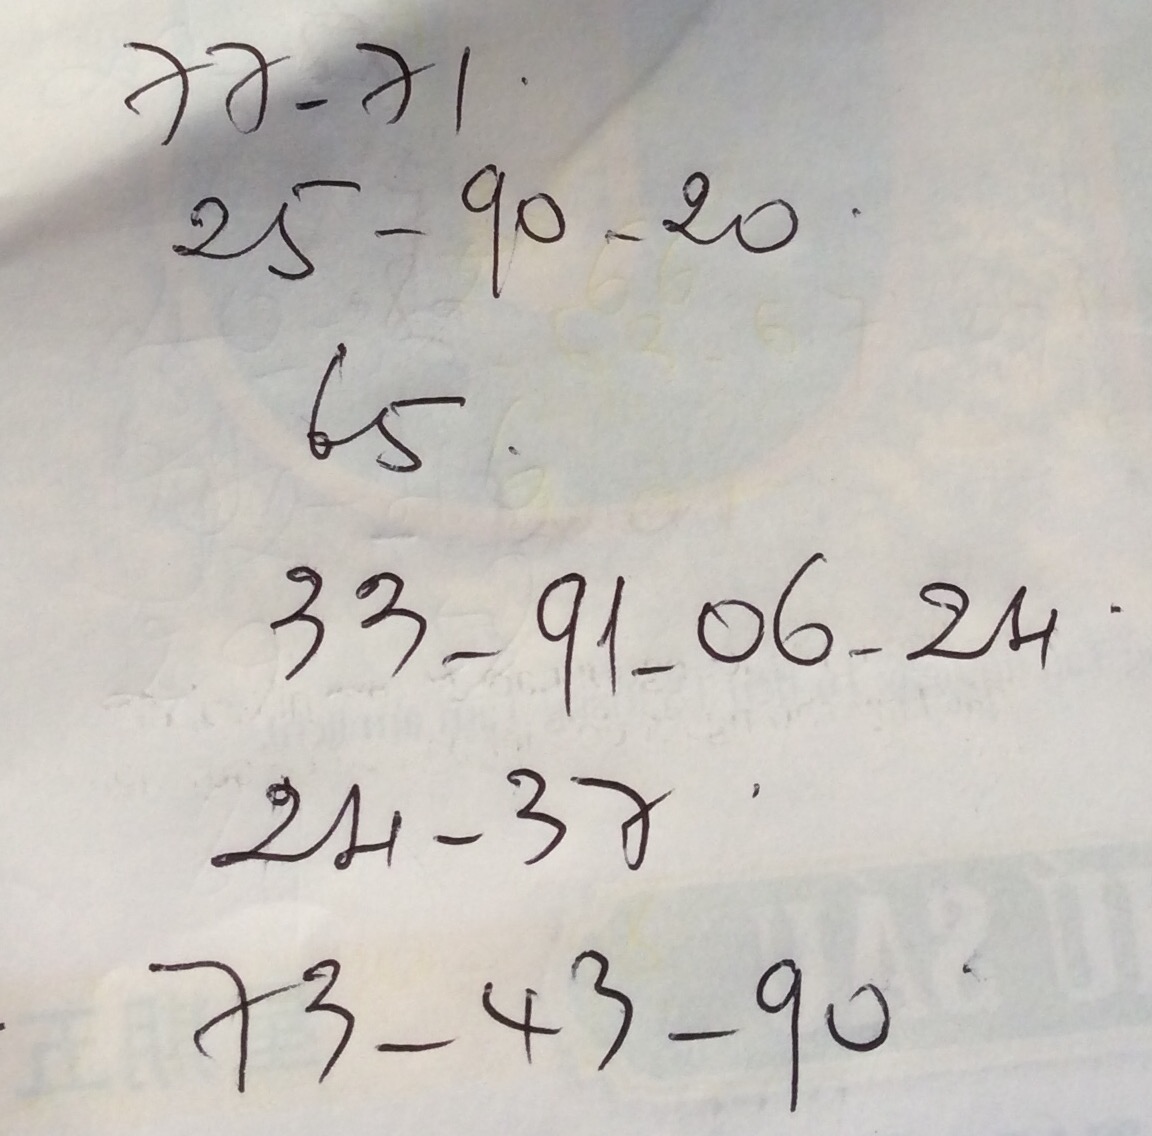 77-71.
25-90-20.
65.
33-91-06-24.
24-37.
73-43-90.